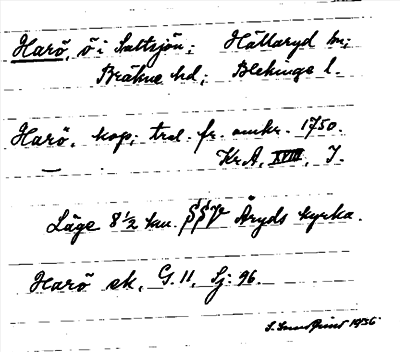 Harö, ö i Saltsjön; Hällaryd sn;
Bräkne hd; Blekinge l.
Harö, kop. trol. fr. omkr. 1750.
Kr.A, XVIII, I.
Läge 8 1/2 km. SSV Åryds kyrka.
Harö ek. G. 11. Sj. 96.
1936